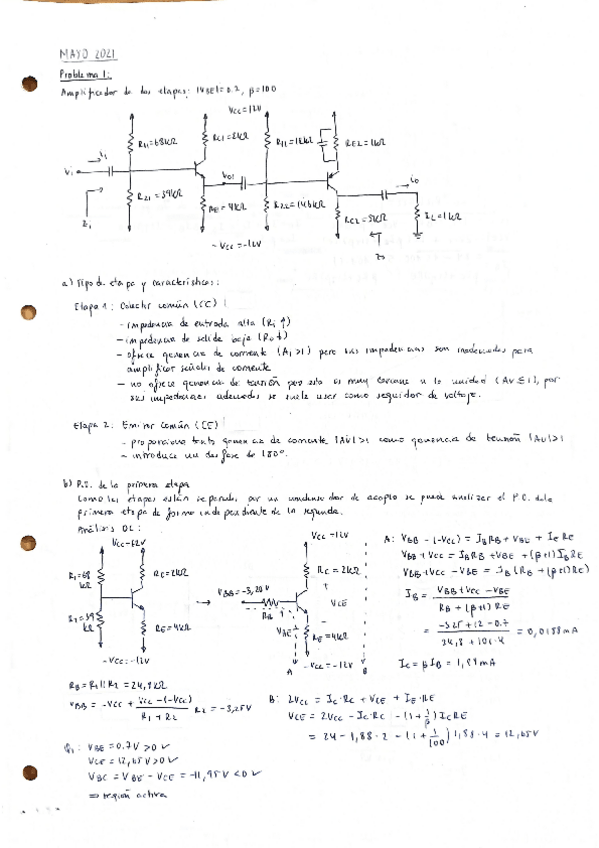 MAYO 2021
Problema 1:
Amplificador de dos etapas: |VBE|=0.2, β=100
Vcc=12V
R11=68kΩ
RC1=2kΩ
R12=12kΩ
RE2=1kΩ
Vi
Vo1
io
R21=39kΩ
RE=4kΩ
RC2=5kΩ
RL=1kΩ
-Vcc=-12V
a) Tipo de etapa y características:
Etapa 1: Colector común (CC)
- impedancia de entrada alta (Ri↑)
- impedancia de salida baja (Ro↓)
- ofrece ganancia de corriente (Ai>1) pero sus impedancias son inadecuadas para
amplificar señales de corriente
- no ofrece ganancia de tensión pues esta es muy cercana a la unidad (Av≤1), por
sus impedancias adecuadas se suele usar como seguidor de voltaje.
Etapa 2: Emisor común (CE)
- proporciona tanto ganancia de corriente |Ai|>1 como ganancia de tensión |Av|>1
- introduce un desfase de 180º.
b) P.T. de la primera etapa
Como las etapas están separadas por un condensador de acoplo se puede analizar el P.C. de la
primera etapa de forma independiente de la segunda.
Análisis DC:
Vcc=12V
R1=68
kΩ
RC=2kΩ
R2=39
kΩ
RE=4kΩ
-Vcc=-12V
→
Vcc=12V
RC=2kΩ
VBB=-3,25V
RB
VCE
VBE
RE=4kΩ
-Vcc=-12V
A
B
A: VBB-(-Vcc) = IBRB+VBE+IERE
VBB+Vcc = IBRB+VBE+(β+1)IBRE
VBB+Vcc-VBE = IB(RB+(β+1)RE)
IB = (VBB+Vcc-VBE)/(RB+(β+1)RE)
= (-3,25+12-0.7)/(24,8+101·4) = 0,0188mA
IC=βIB=1,88mA
RB=R1||R2=24,8kΩ
VBB = -Vcc + (Vcc-(-Vcc))/(R1+R2) R2 = -3,25V
B: 2Vcc = IC·RC+VCE+IE·RE
VCE=2Vcc-IC·RC-(1+1/β)ICRE
= 24-1,88·2-(1+1/100)1,88·4 = 12,65V
Q1: VBE=0.7V>0 ✓
VCE=12,65V>0 ✓
VBC=VBE-VCE=-11,95V<0 ✓
⇒ región activa